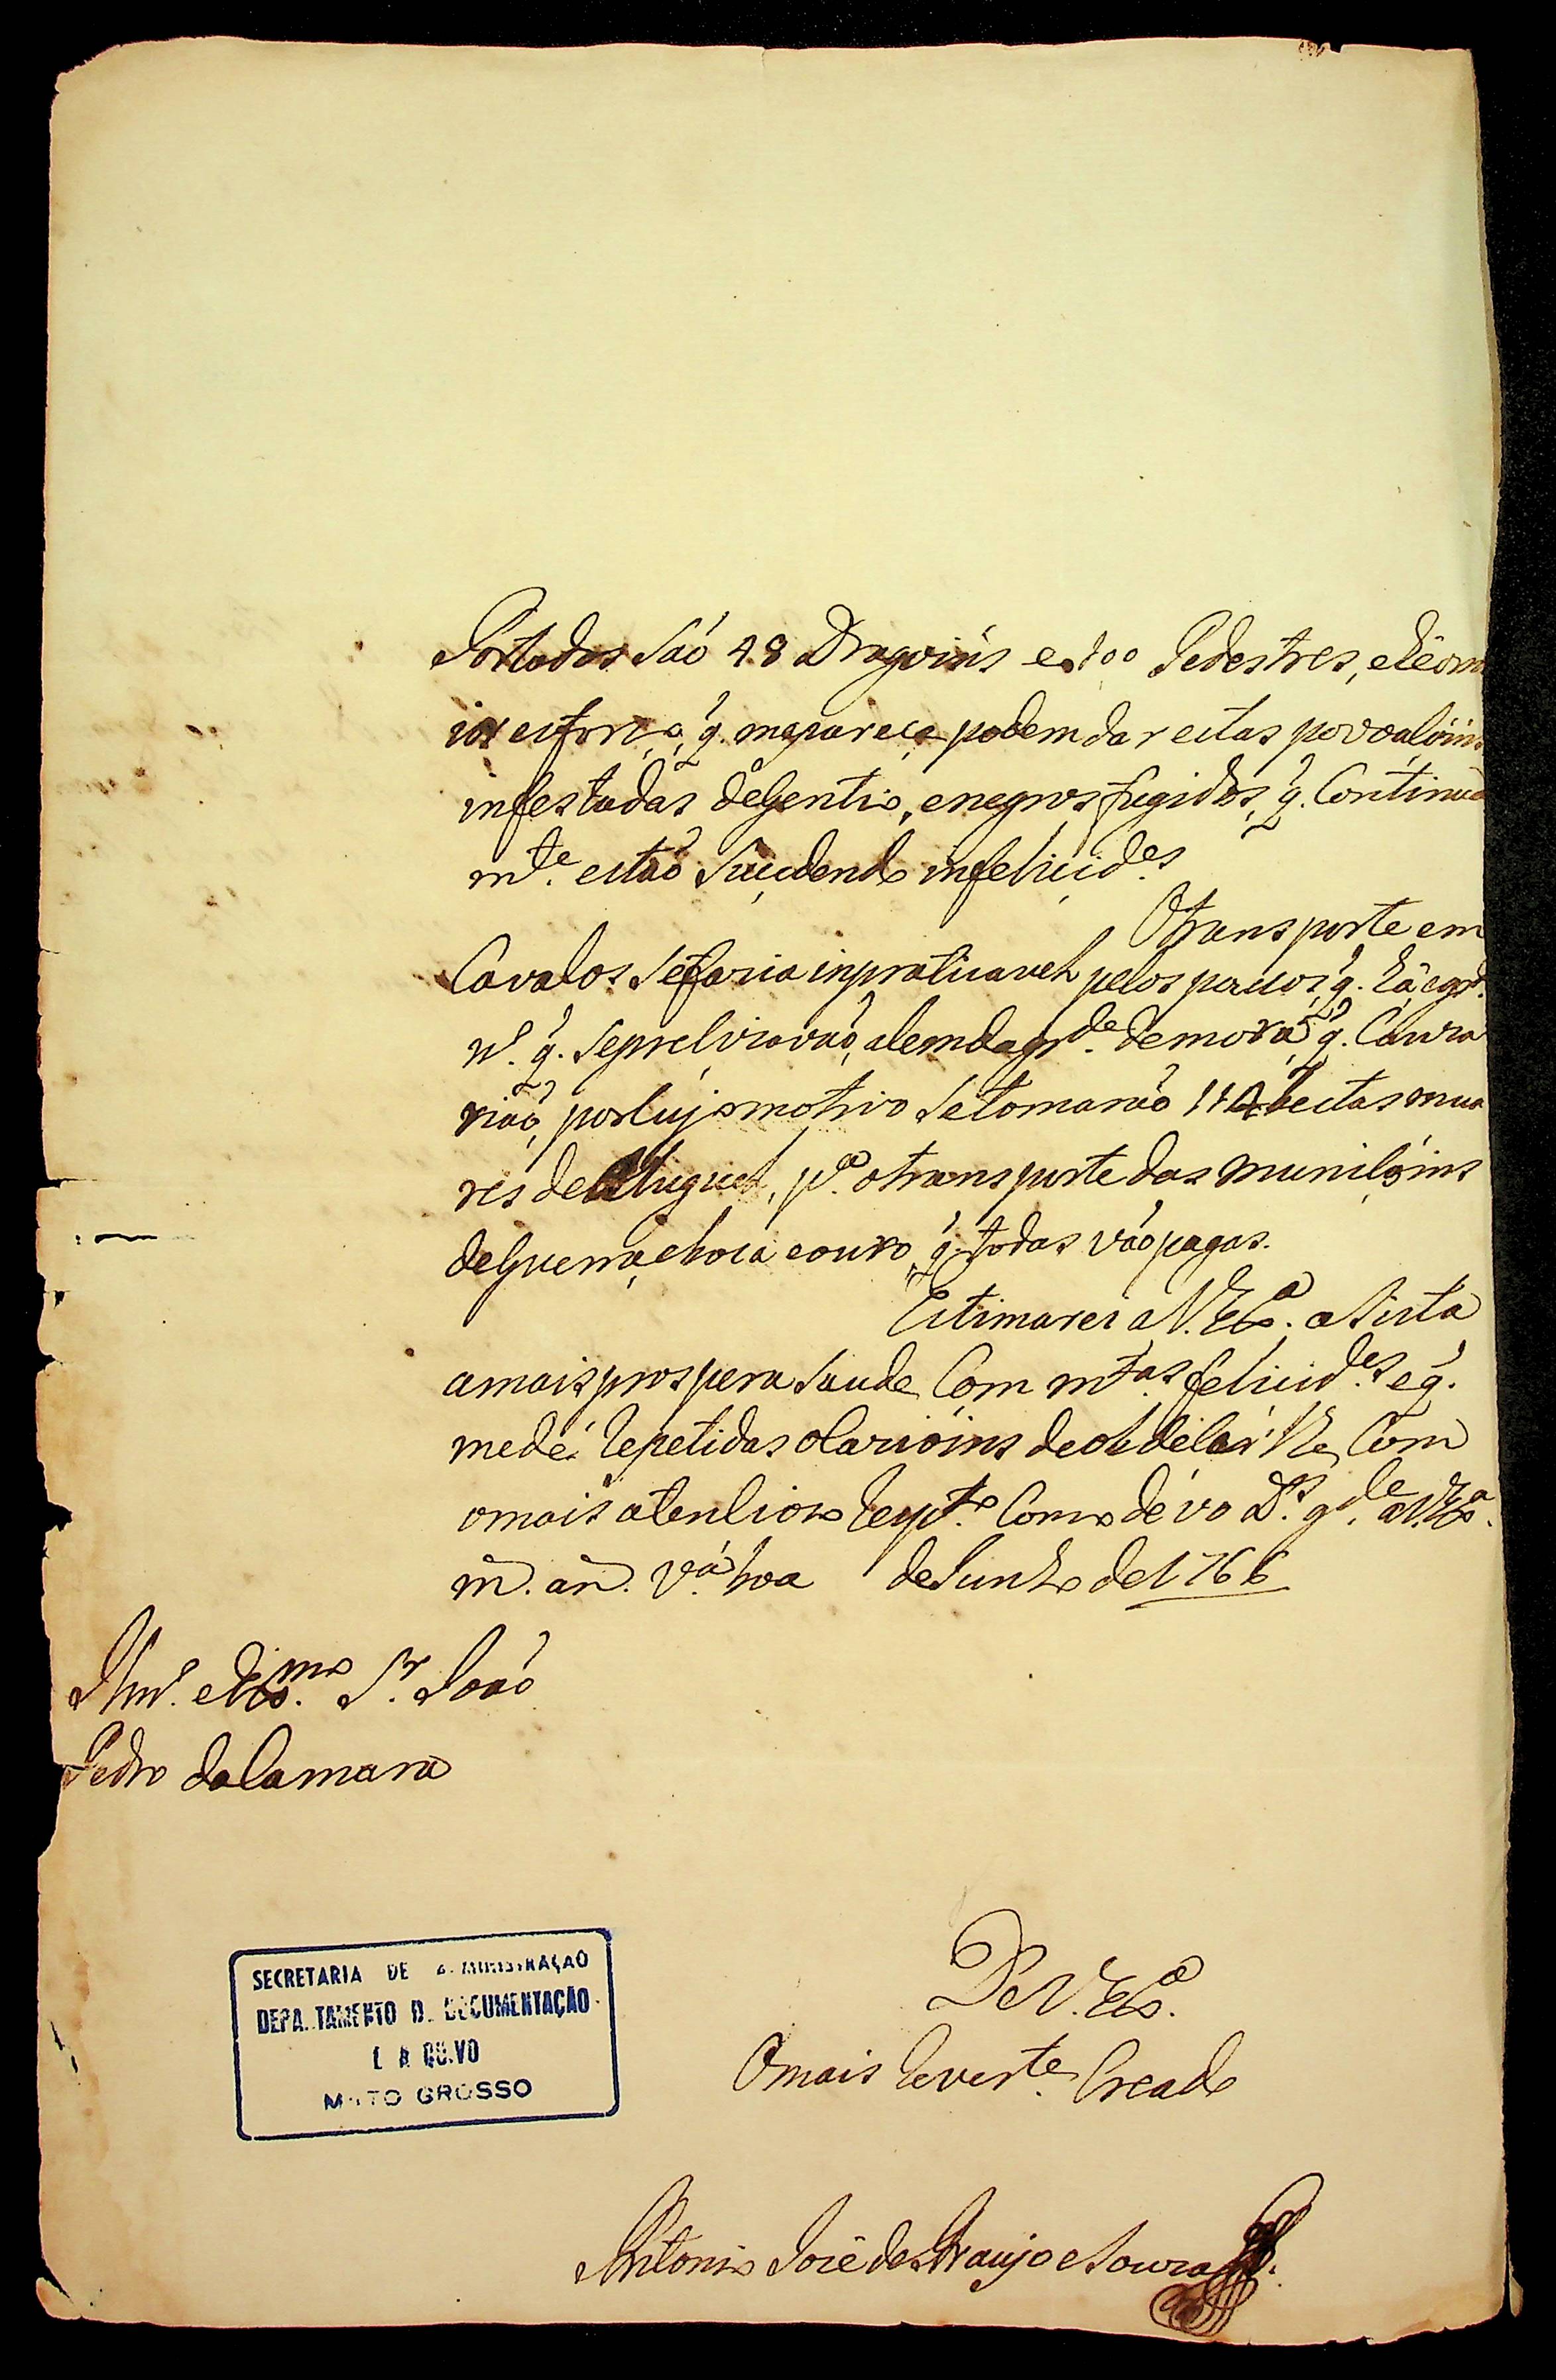 Portodos Saó 48 Dragoíns e 100 Pedestres, e hé om
esforço q̃. mepareçe podem dar estas povoaçóins
infestadas de Gentio, e negros fugidos, q̃. Continua
m.te estaõ Suçedendo infeliçid.es
O transporte em
Cavalos Sefaria inpraticavel pelos paçtos, q̃. há e gr.
n.º q̃. Sepreçizavaõ, alem da gr.de demora q̃. Cauza
riaõ, por Cujo motivo Se tomaraõ 110 bestas mua
res de Aluguel, p.ª o transporte das muniçóins
de Guerra, e boca e ouro, q̃. todas vaõ pagas.
Estimarei a V. Ex.ª aSista
a mais prospera Saude Com m.tas feliçid.es e q̃.
me dé Repetidas ocazióins de obdeçer lhe Com
o mais atençiozo Resp.to Como dévo D.s g.de a V. Ex.ª
m. an. V.ª boa de Junho de 1766
Illm.º e Ex.mo S.r Joaõ
Pedro da Camara
SECRETARIA DE ADMINISTRAÇÃO
DEPARTAMENTO DE DOCUMENTAÇÃO
E ARQUIVO
MATO GROSSO
De V. Ex.ª
O mais Rever.te Creado
Antonio Jozé de Araujo e Souza